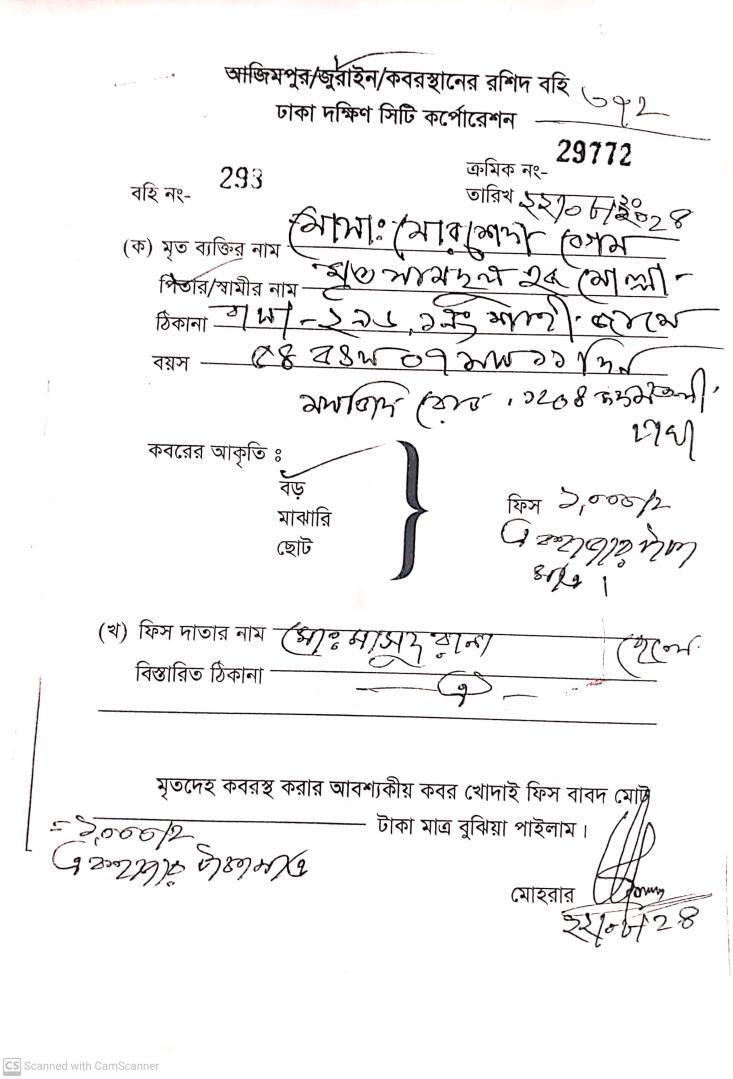 আজিমপুর/জুরাইন/কবরস্থানের রশিদ বহি
ঢাকা দক্ষিণ সিটি কর্পোরেশন
বহি নং- 293
ক্রমিক নং- 29772
তারিখ
(ক) মৃত ব্যক্তির নাম মোসাঃ মোরশেদা বেগম
পিতার/স্বামীর নাম মৃত সামছুল হক মোল্লা
ঠিকানা বাসা - ২৯৬, ১নং জামে
বয়স ৫৪ বৎসর ০৭ মাস ১১ দিন
মসজিদ রোড, ১২০৪ ঢাকা
কবরের আকৃতি ঃ
বড়
মাঝারি
ছোট
ফিস ১,০০০/=
এক হাজার টাকা মাত্র।
(খ) ফিস দাতার নাম মোঃ মাসুদ রানা ছেলে
বিস্তারিত ঠিকানা — ঐ —
মৃতদেহ কবরস্থ করার আবশ্যকীয় কবর খোদাই ফিস বাবদ মোট
= ১,০০০/= টাকা মাত্র বুঝিয়া পাইলাম।
এক হাজার টাকা মাত্র
মোহরার
CS Scanned with CamScanner